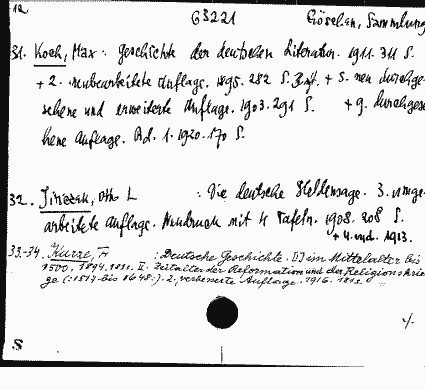 12 G3221 Göschen, Sammlung
31. Koch, Max: Geschichte der deutschen Literatur. 1911. 311 S.
+ 2. neubearbeitete Auflage. 1895. 282 S. + 5. neu durchge-
sehene und erweiterte Auflage. 1903. 291 S. + 9. durchgese-
hene Auflage. Bd. 1. 1920. 170 S.
32. Jiriczek, Otto L : Die deutsche Heldensage. 3. umge-
arbeitete Auflage. Neudruck mit 4 Tafeln. 1908. 208 S.
+ 4. 1913.
33.-34. Kurze, F : Deutsche Geschichte. I im Mittelalter bis
1500. 1894. II. Zeitalter der Reformation und der Religionskrie-
ge (:1517 bis 1648:). 2. verbesserte Auflage. 1916.
S